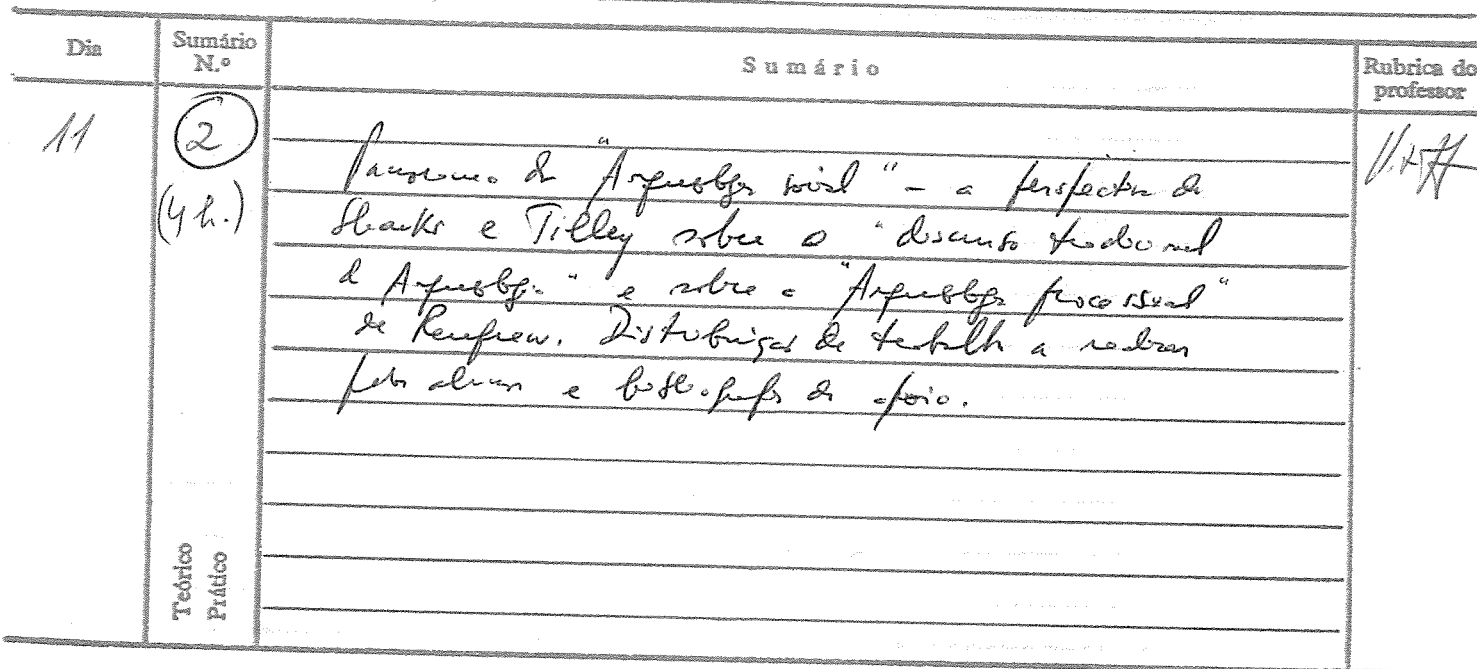 Dia
Sumário N.º
Sumário
Rubrica do professor
11
2
(4 h.)
Panorama da "Arqueologia social" – a perspectiva de
Shanks e Tilley sobre o "discurso tradicional
da Arqueologia" e sobre a "Arqueologia processual"
de Renfrew. Distribuição de trabalhos a realizar
pelos alunos e bibliografia de apoio.
Teórico
Prático